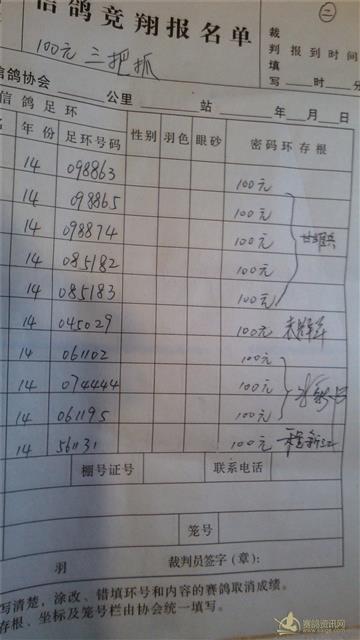 信鸽竞翔报名单
二
100元 三把抓
裁判填写
报到时间
时 分
信鸽协会 公里 站 年 月 日
信鸽足环
年份 足环号码 性别 羽色 眼砂 密码环存根
14 098863 100元
14 098865 100元
14 098874 100元
14 085182 100元
14 085183 100元
14 045029 100元
14 061102 100元
14 074444 100元
14 061195 100元
14 561131 100元
棚号证号 联系电话
笼号
羽 裁判员签字(章):
写清楚,涂改、错填环号和内容的赛鸽取消成绩。
存根、坐标及笼号栏由协会统一填写。
赛鸽资讯网
www.saige.com